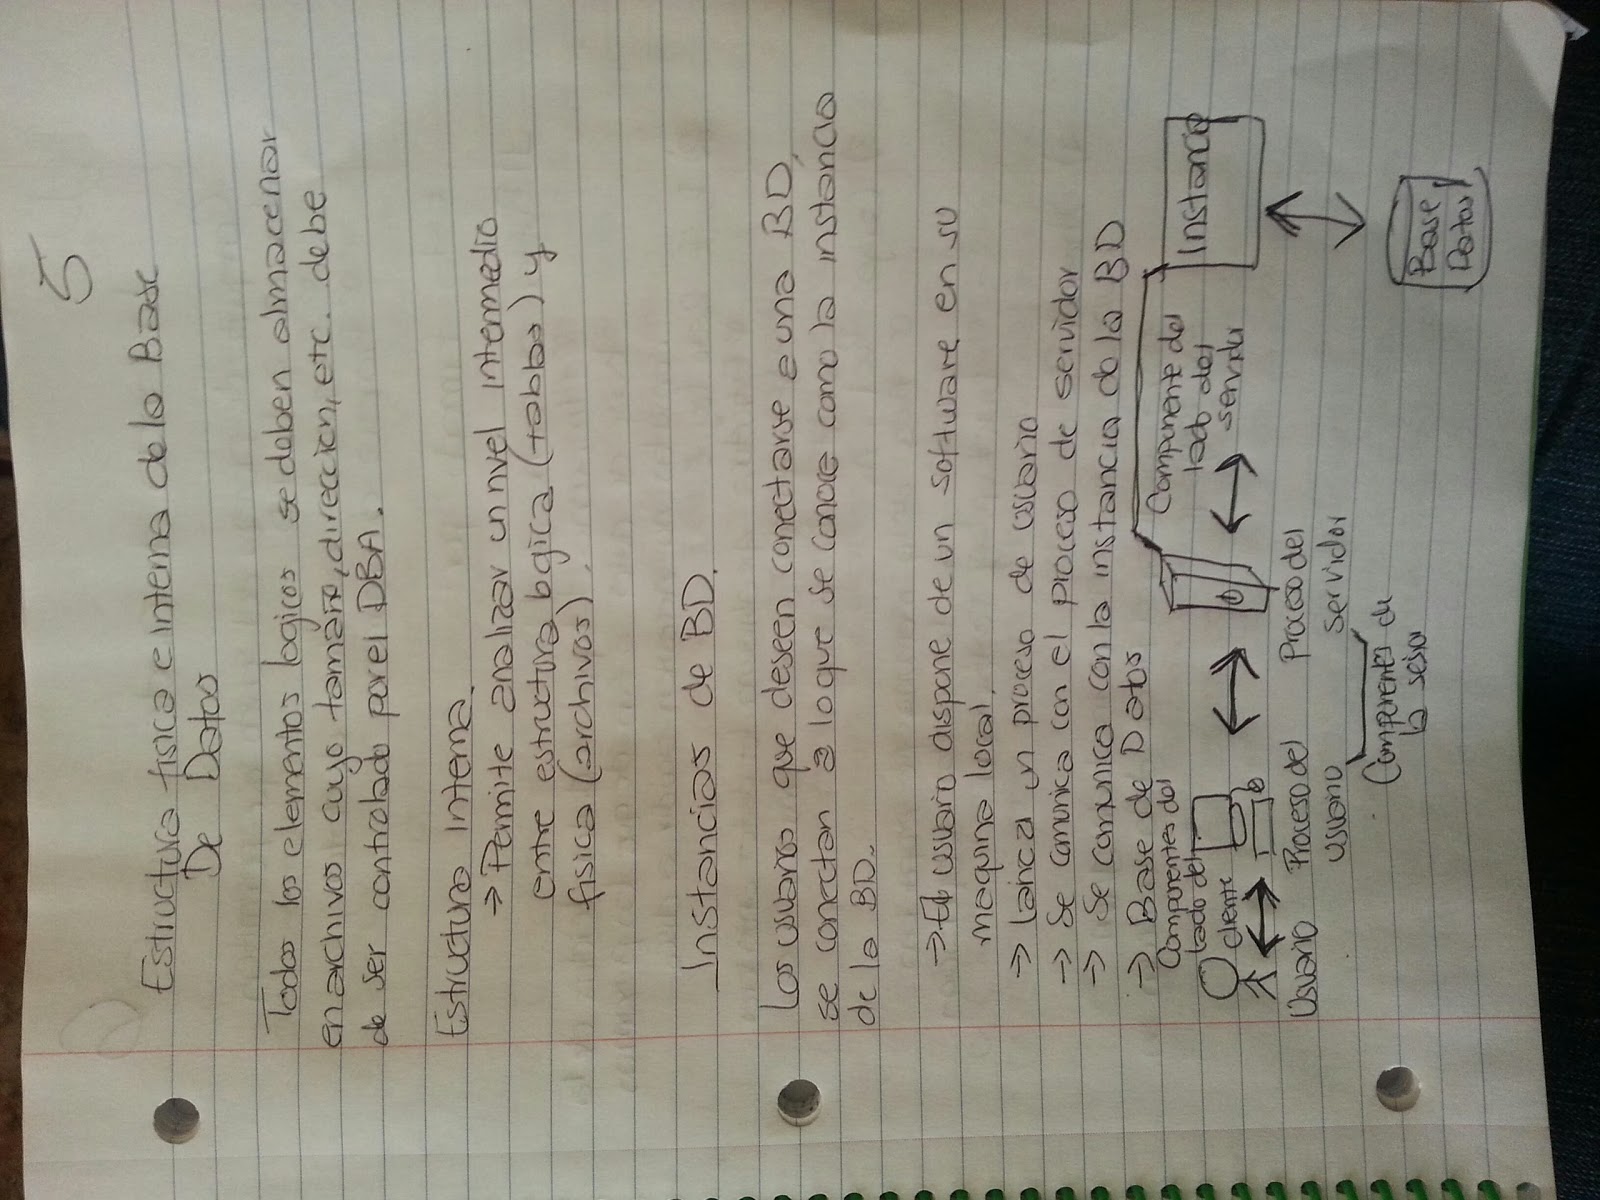 5
Estructura fisica e interna de la Base
De Datos
Todos los elementos logicos se deben almacenar
en archivos cuyo tamaño, direccion, etc. debe
de ser controlado por el DBA.
Estructura Interna.
→ Permite analizar un nivel intermedio
entre estructura logica (tablas) y
fisica (archivos).
Instancias de BD.
Los usuarios que deseen conectarse a una BD,
se conectan a lo que se conoce como la instancia
de la BD.
→ El usuario dispone de un software en su
maquina local.
→ Lanza un proceso de usuario
→ Se comunica con el proceso de servidor
→ Se comunica con la instancia de la BD
→ Base de Datos
Componentes del
lado del
cliente
Componente del
lado del
servidor
Instancia
Usuario
Proceso del
usuario
Proceso del
Servidor
Componentes de
la sesion
Base
Datos